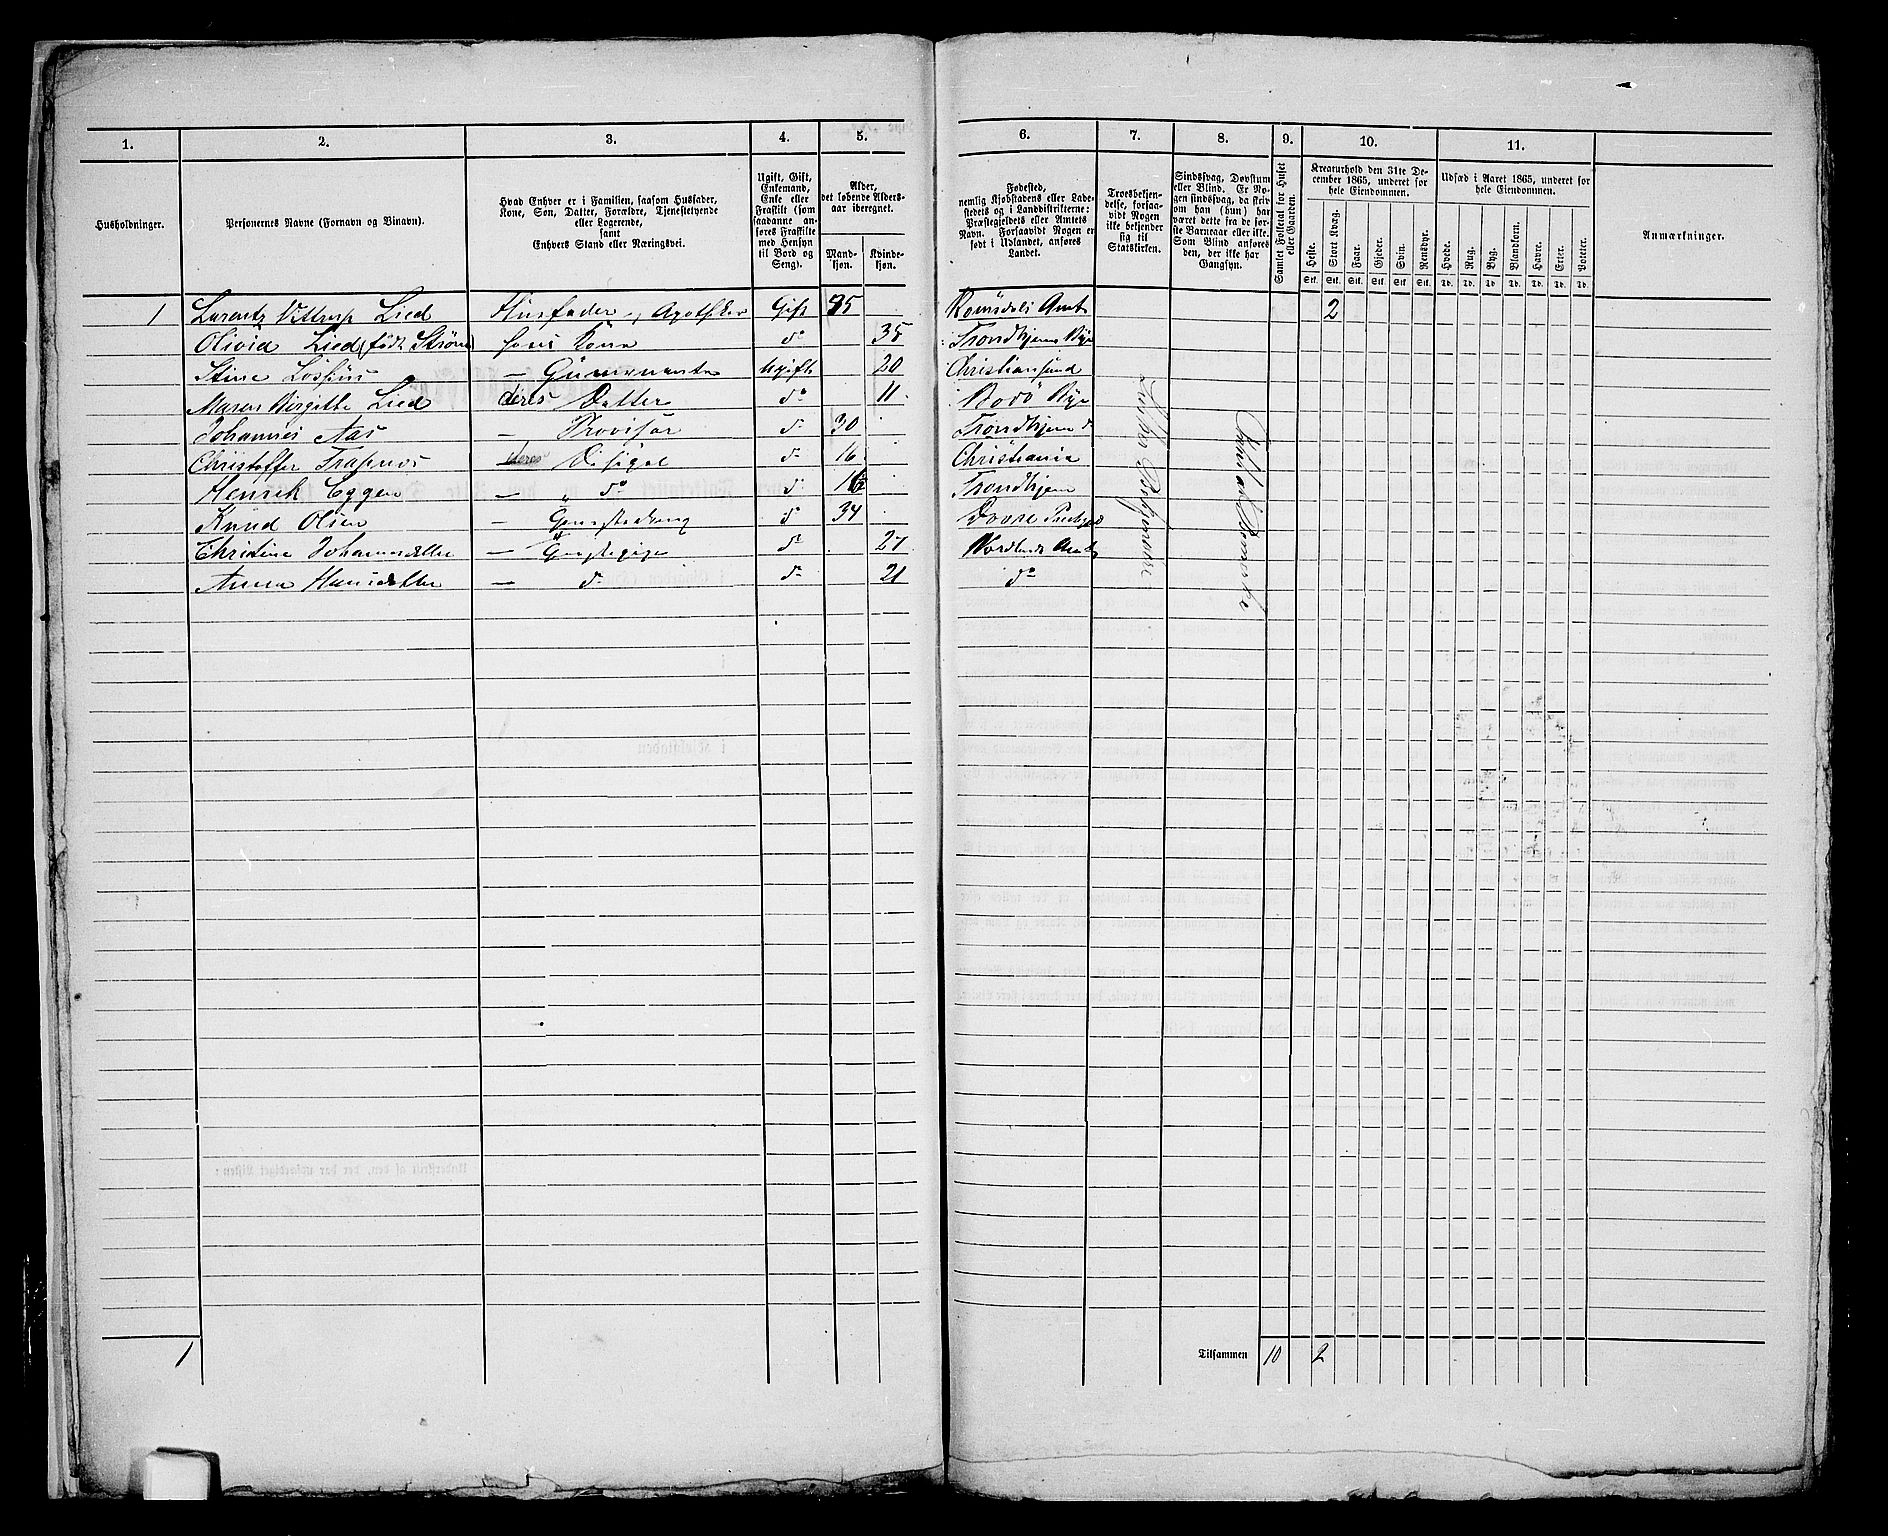 1. 2. 3. 4. 5. 6. 7. 8. 9. 10. 11.
Husholdninger.
Personernes Navne (Fornavn og Binavn).
Hvad Enhver er i Familien, saasom Husfader, Kone, Søn, Datter, Forældre, Tjenestetyende eller Logerende, samt Enhvers Stand eller Næringsvei.
Ugift, Gift, Enkemand, Enke eller Fraskilt (som saadanne anføres Fraskilte med Hensyn til Bord og Seng).
Alder, det løbende Aldersaar iberegnet.
Mandkjøn. Kvindekjøn.
Fødested, nemlig Kjøbstadens eller Ladestedets og i Landdistrikterne: Præstegjeldets eller Amtets Navn. Forsaavidt Nogen er født i Udlandet, anføres Landet.
Troesbekjendelse, forsaavidt Nogen ikke bekjender sig til Statskirken.
Sindssvag, Døvstum eller Blind. Er Nogen sindssvag, da skriv om han (hun) har været dette fra de første Barneaar eller ikke. Som Blind anføres den, der ikke har Gangsyn.
Samlet Folketal for Huset eller Gaarden.
Kreaturhold den 31te December 1865, underet for hele Eiendommen.
Heste. Stort Kvæg. Faar. Gjeder. Svin. Rensdyr.
Stk. Stk. Stk. Stk. Stk. Stk.
Udsæd i Aaret 1865, underet for hele Eiendommen.
Hvede. Rug. Byg. Blandkorn. Havre. Erter. Poteter.
Td. Td. Td. Td. Td. Td. Td.
Anmærkninger.
1 Lorentz Vittrup Lied Husfader, Apotheker Gift 35 Romsdals Amt 2
Olivia Lied (født Strøm) hans Kone do 35 Trondhjems Bye
Stine Ugift 20 Christiansund
Maren Birgitte Lied deres Datter do 11 Bodö Bye
Johannes Aas — Provisor do 30 Trondhjem
Christoffer — deres Disipel do 16 Christiania
Henrik Eggen — " do do 16 Trondhjem
Knud Olsen — Gaardsdreng do 34
Christine Johannsdatter — do 27 Nordlands Amt
Anna Hansdatter — do do 21 do
1
Tilsammen 10 2